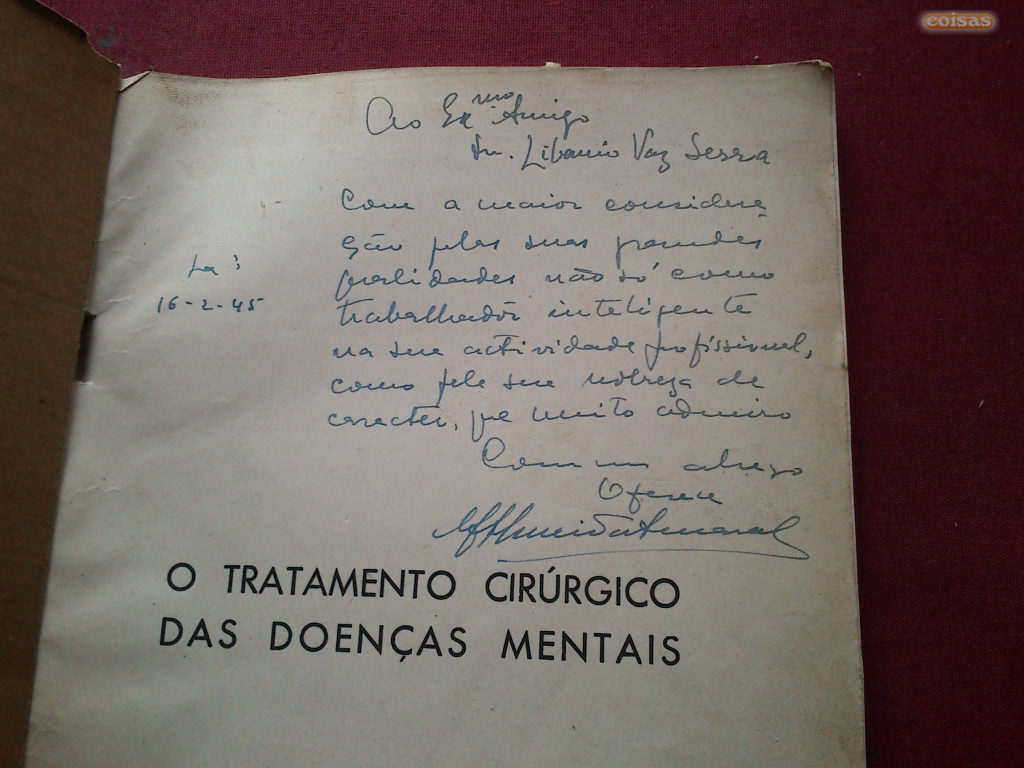 coisas
Ao Exmo Amigo
Dr. Libanio Vaz Serra
Com a maior considera
ção pelas suas grandes
qualidades não só como
trabalhador inteligente
na sua actividade profissional,
como pela sua nobreza de
caracter, que muito admiro
Com um abraço
Oferece
Almeida Amaral
16-2-45
O TRATAMENTO CIRÚRGICO
DAS DOENÇAS MENTAIS